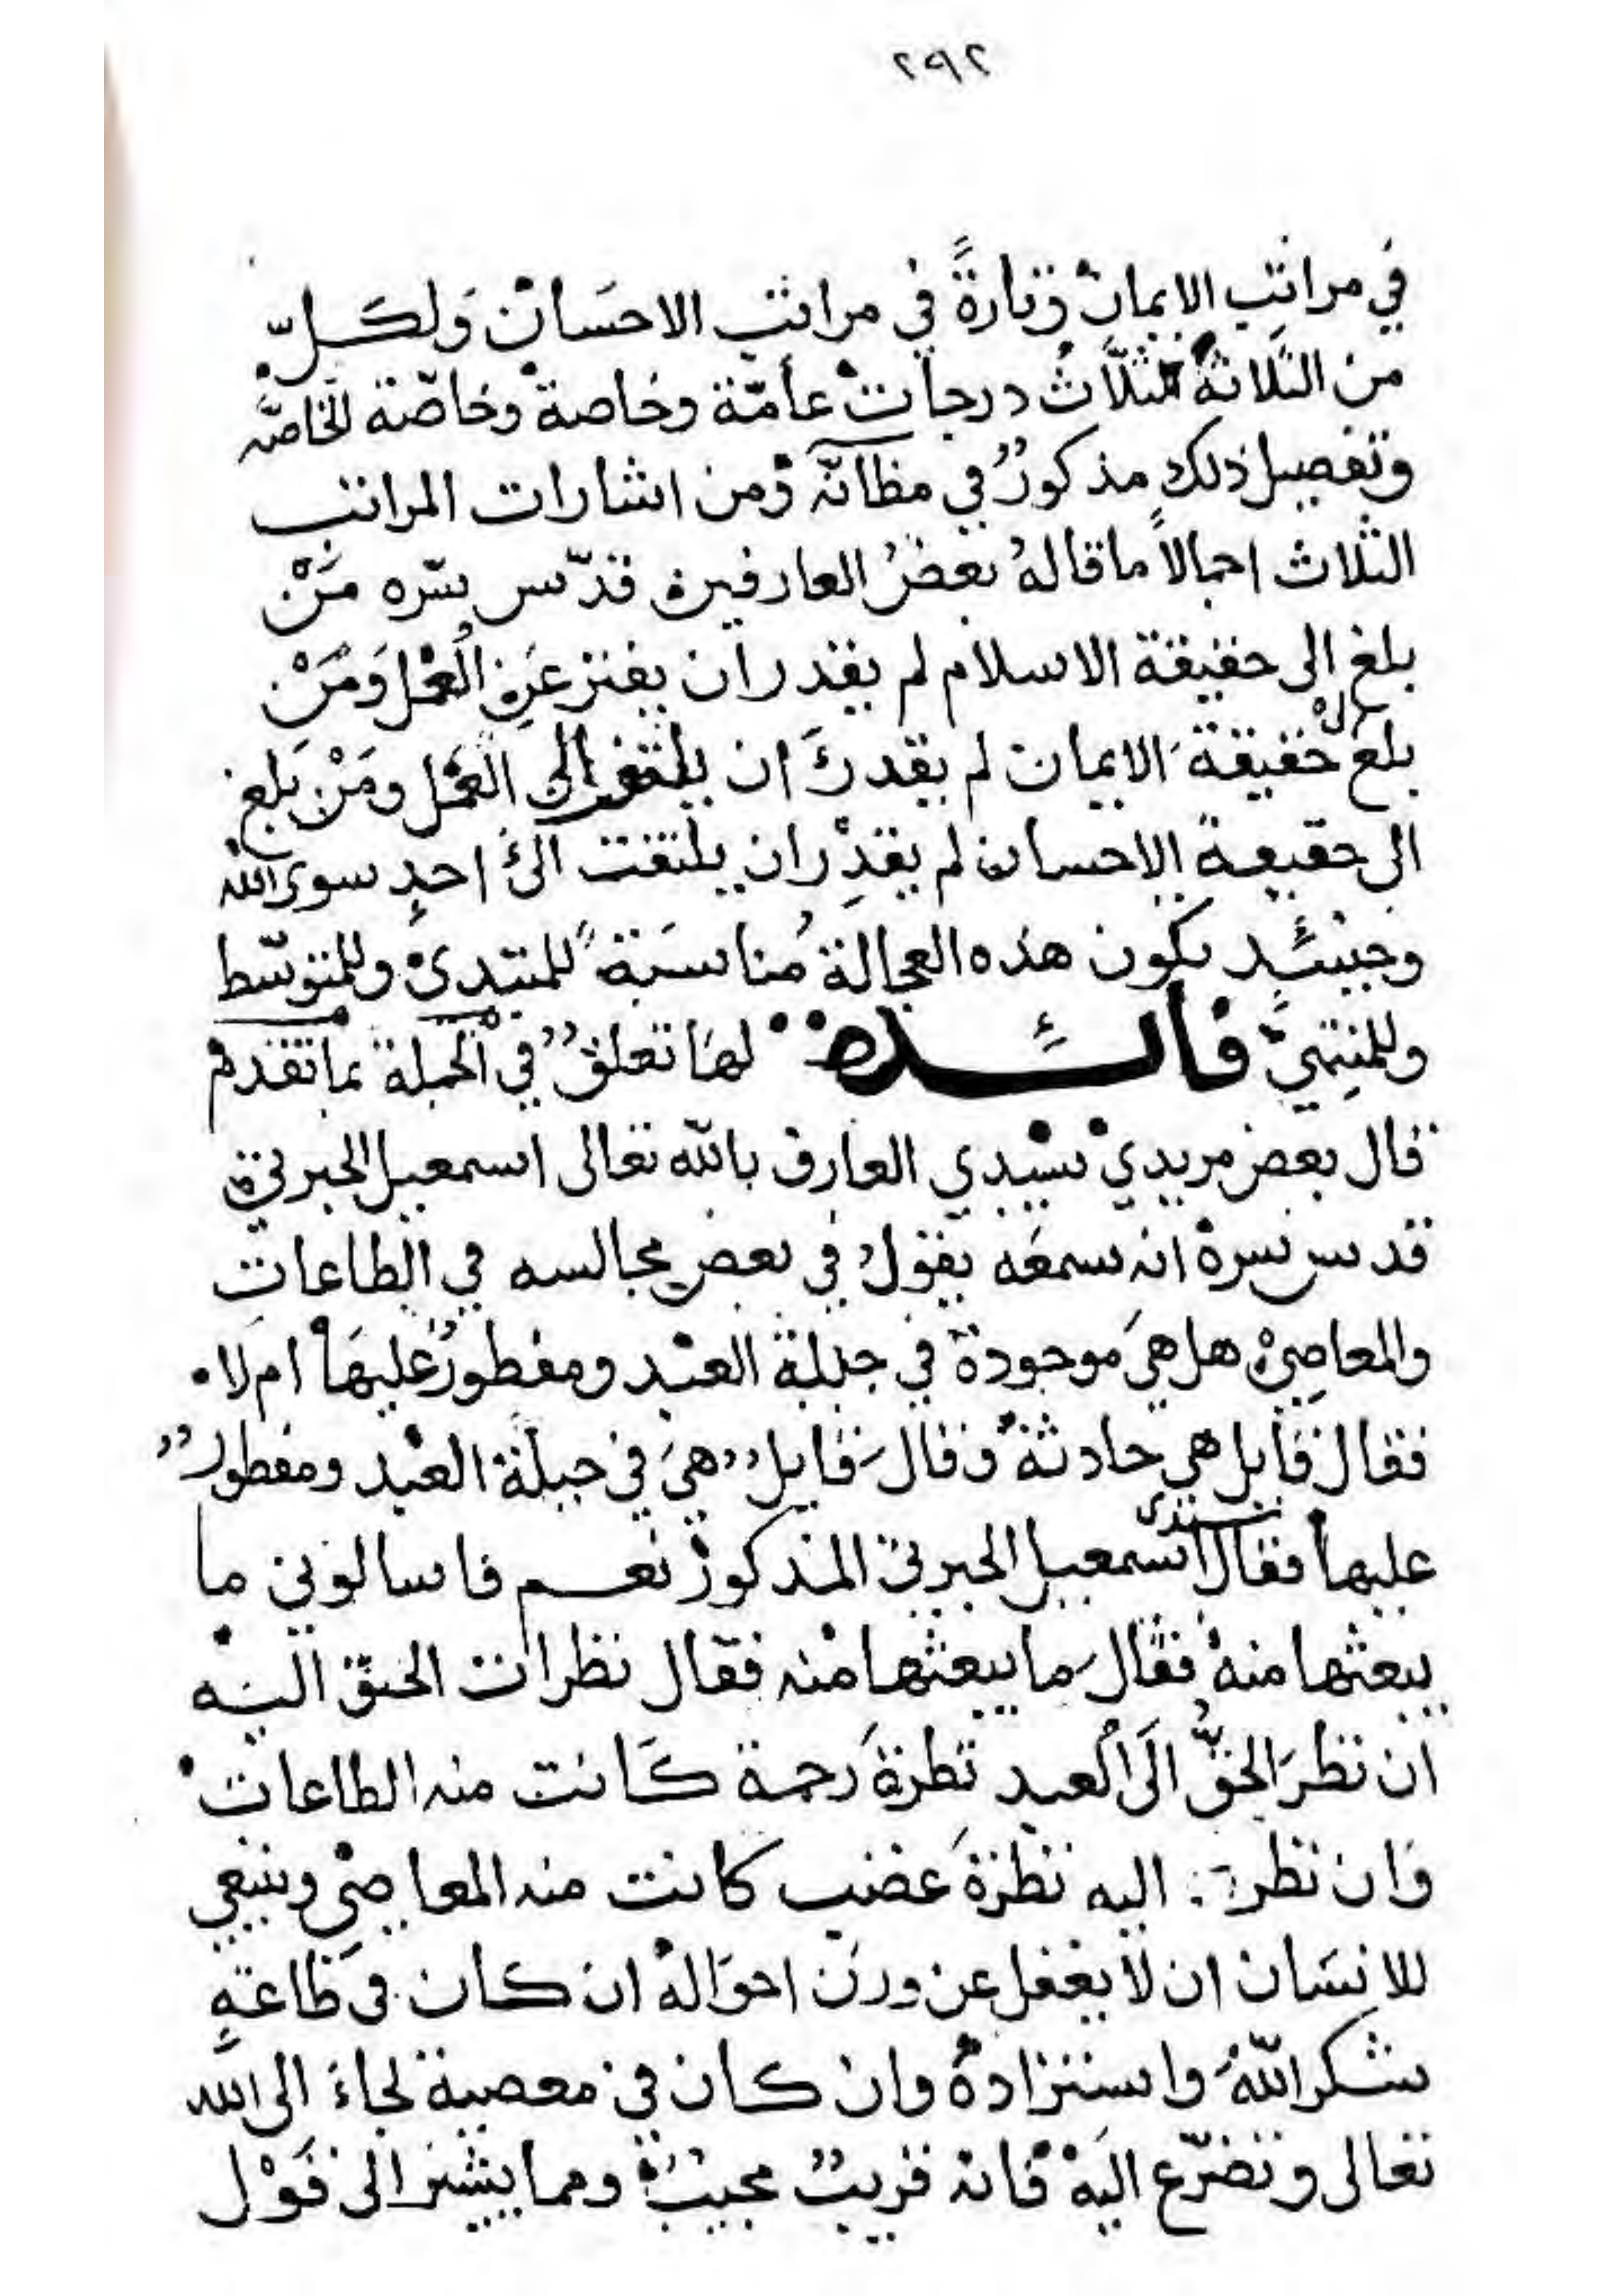 ٢٩٢
في مراتب الايمان وتارةً في مراتب الاحسان ولكلّ
من الثلاثة ثلاث درجات عامّة وخاصة وخاصّة الخاصّه
وتفصيل ذلك مذكورٌ في مظانّه ومن اشارات المراتب
الثلاث اجمالاً ما قاله بعضُ العارفين قدّس سّره مَنْ
بلغ الى حقيقة الاسلام لم يقدر ان يفتر عَنِ العمل وَمَنْ
بلغ الى حقيقة الايمان لم يقدر ان يلتفت الى العمل ومَنْ بلغ
الى حقيقة الاحسان لم يقدر ان يلتفت الى احدٍ سوى الله
وحينئذٍ يكون هذه العجالة مُناسَبةً للمبتدي وللمتوسّط
وللمنتهي فائدة لها تعلقٌ في الجملة بما تقدم
قال بعض مريدي سيدي العارف بالله تعالى اسمعيل الجبرتي
قدس سره انه سمعه يقول في بعض مجالسه في الطاعات
والمعاصي هل هيَ موجودة في جبلة العبد ومفطورٌ عليها ام لا
فقال قايل هي حادثة وقال قايلٌ هيَ في جبلة العبد ومفطورٌ
عليها فقال سيدى اسمعيل الجبرتي المذكور نعم فاسالوني ما
يبعثها منه فقال ما يبعثها منه فقال نظرات الحق اليه
ان نظرَ الحقُّ الى العبد نظرةَ رحمة كانت منه الطاعات
وان نظر اليه نظرةَ غضب كانت منه المعاصي وينبغي
للانسان ان لا يغفل عن وزن احواله ان كان فى طاعةٍ
شكر الله واستزاده وان كان في معصية لجاءَ الى الله
تعالى وتضرّع اليه فانه قريبٌ مجيبٌ ومما يشير الى قَوْل